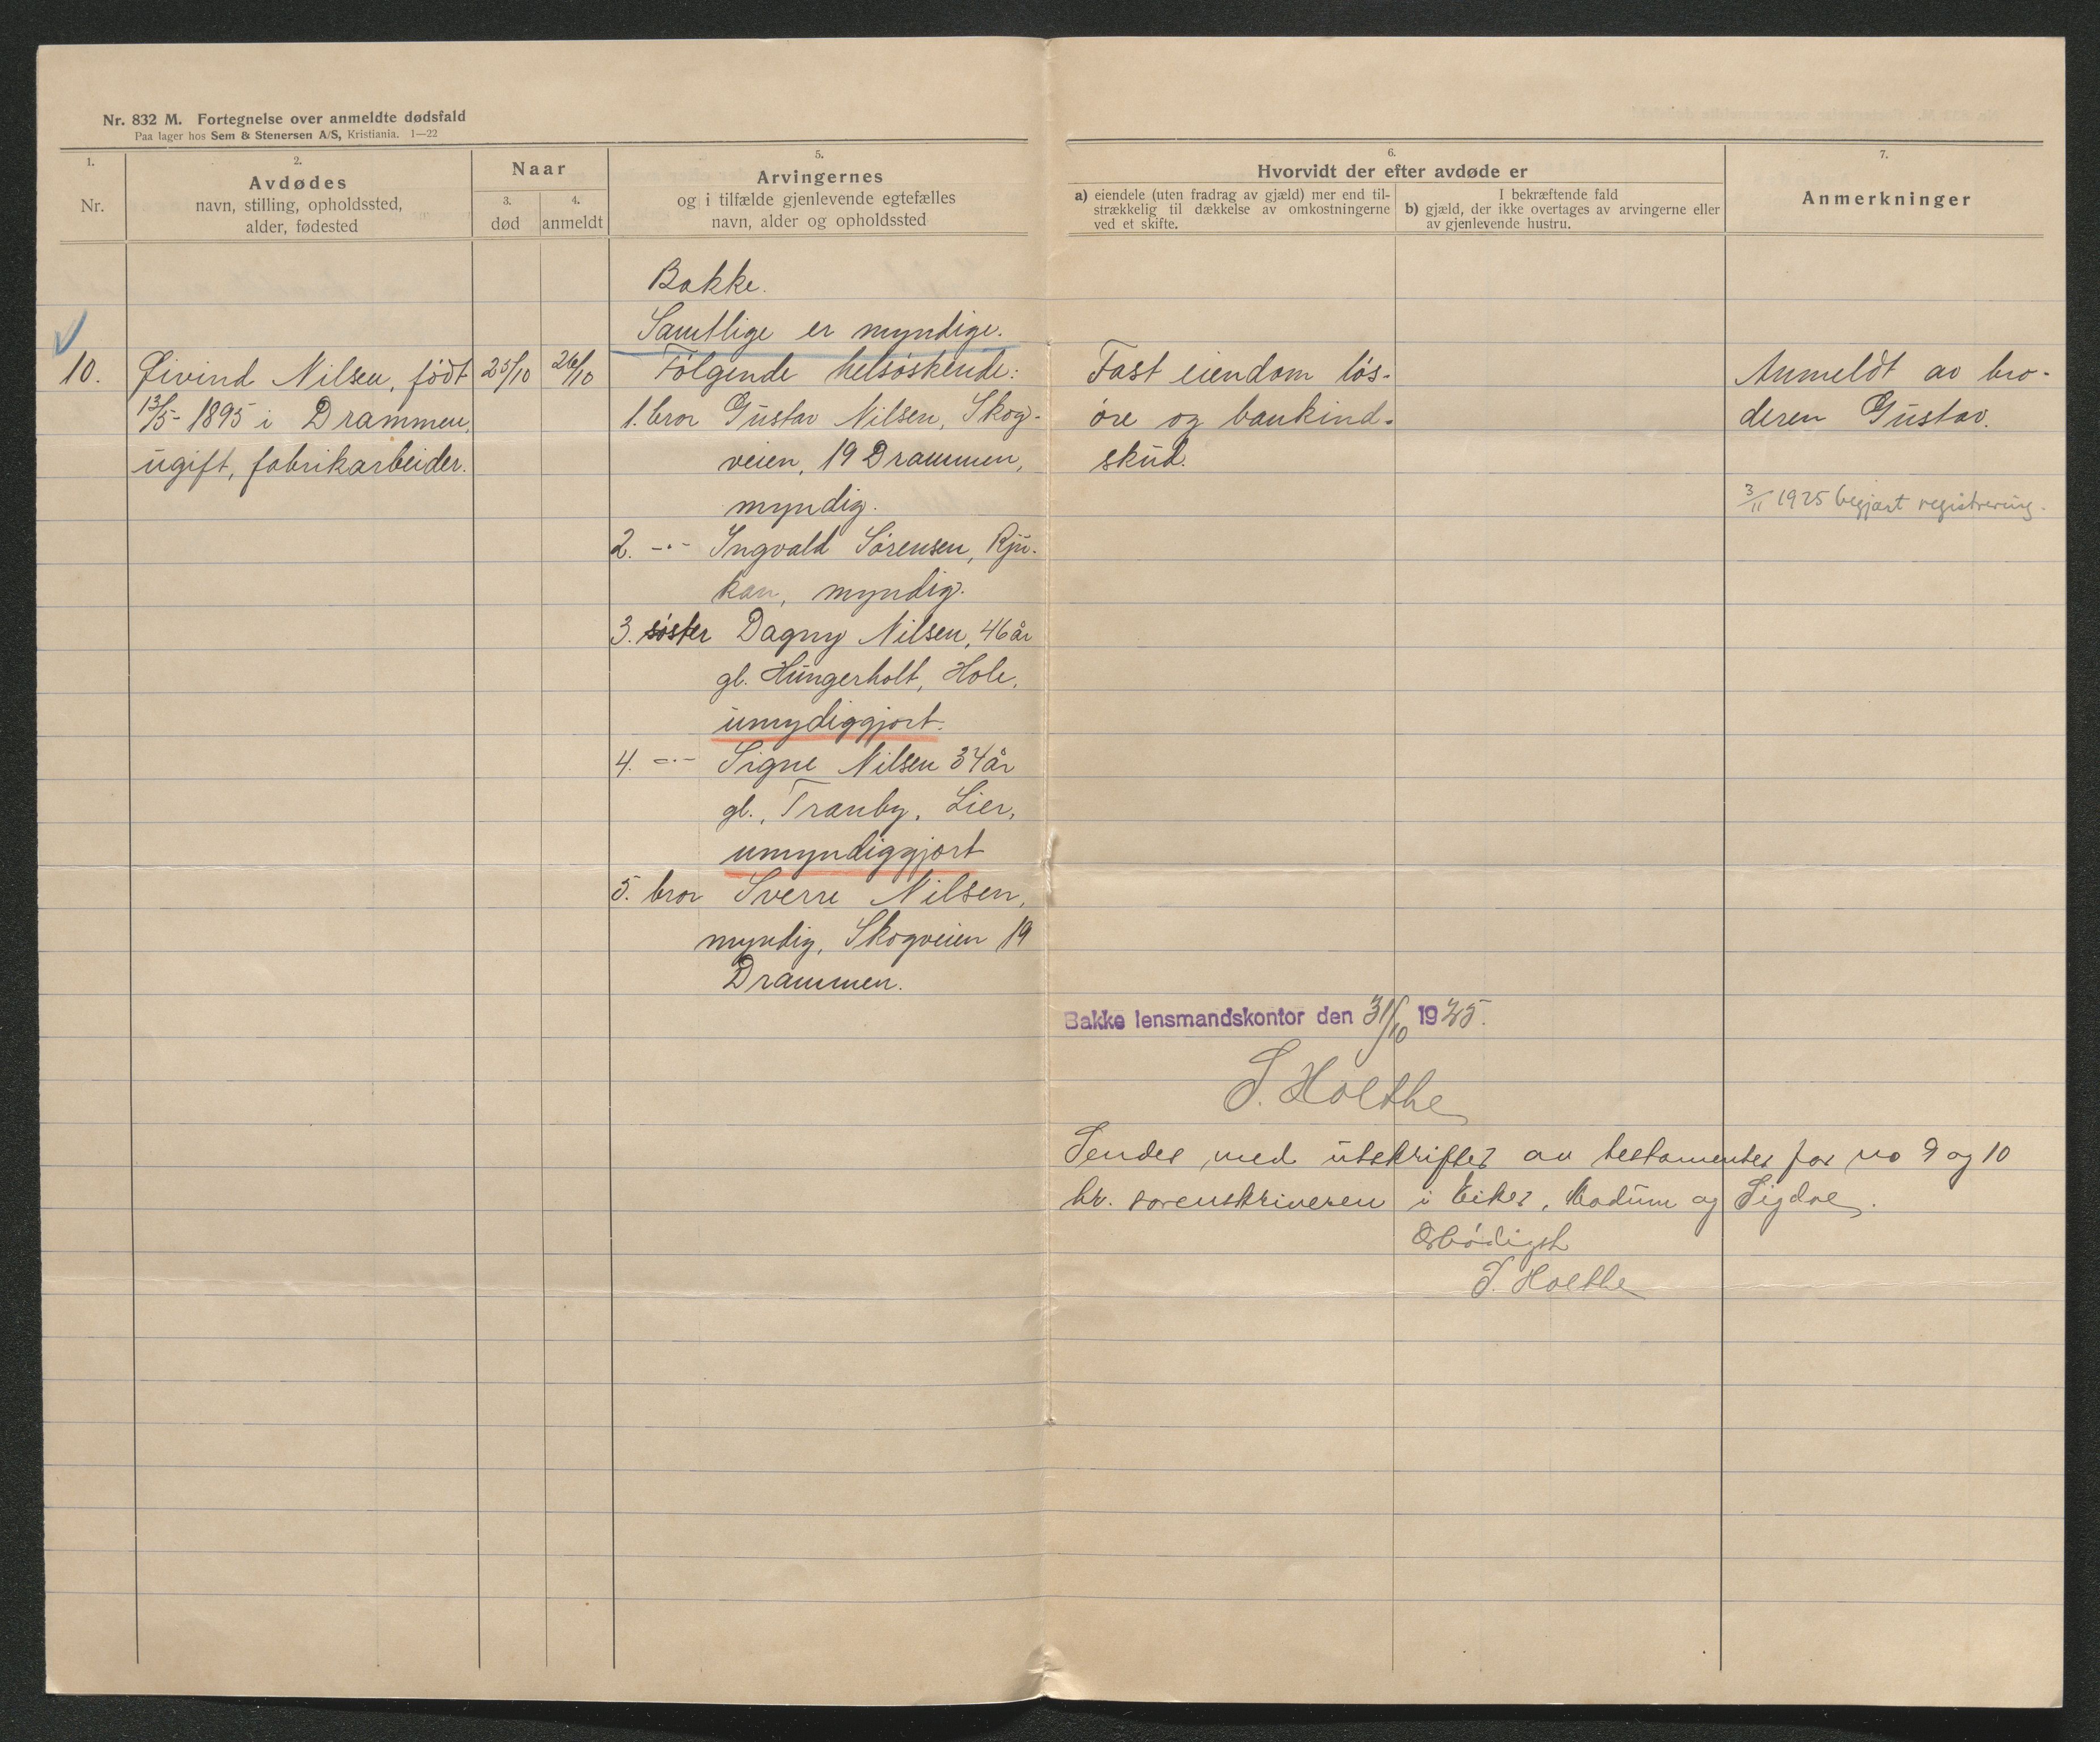 Nr. 832 M. Fortegnelse over anmeldte dødsfald
Paa lager hos Sem & Stenersen A/S, Kristiania. 1—22
1.
Nr.
2.
Avdødes
navn, stilling, opholdssted,
alder, fødested
Naar
3.
død
4.
anmeldt
5.
Arvingernes
og i tilfælde gjenlevende egtefælles
navn, alder og opholdssted
6.
Hvorvidt der efter avdøde er
a) eiendele (uten fradrag av gjæld) mer end til-
strækkelig til dækkelse av omkostningerne
ved et skifte.
I bekræftende fald
b) gjæld, der ikke overtages av arvingerne eller
av gjenlevende hustru.
7.
Anmerkninger
Bakke.
Samtlige er myndige.
10.
Øivind Nilsen, født
13/5- 1895 i Drammen,
ugift, fabrikarbeider.
25/10
26/10
Følgende helsøskende:
1. bror Gustav Nilsen, Skog-
veien, 19 Drammen,
myndig.
2. -·- Ingvald Sørensen, Rju-
kan, myndig.
3. søster Dagny Nilsen, 46 år
gl. Hungerholt, Hole,
umydiggjort.
4. -·- Signe Nilsen 34 år
gl., Tranby, Lier,
umyndiggjort
5. bror Sverre Nilsen,
myndig, Skogveien 19
Drammen.
Fast eiendom løs-
øre og bankind-
skud.
Anmeldt av bro-
deren Gustav.
3/11 1925 begjært registrering.
Bakke lensmandskontor den 31/10 1925.
S. Holthe
Sendes med utskrifter av testamenter for no 9 og 10
hr. sorenskriveren i Eiker, Modum og Sigdal.
Ærbødigst
S. Holthe